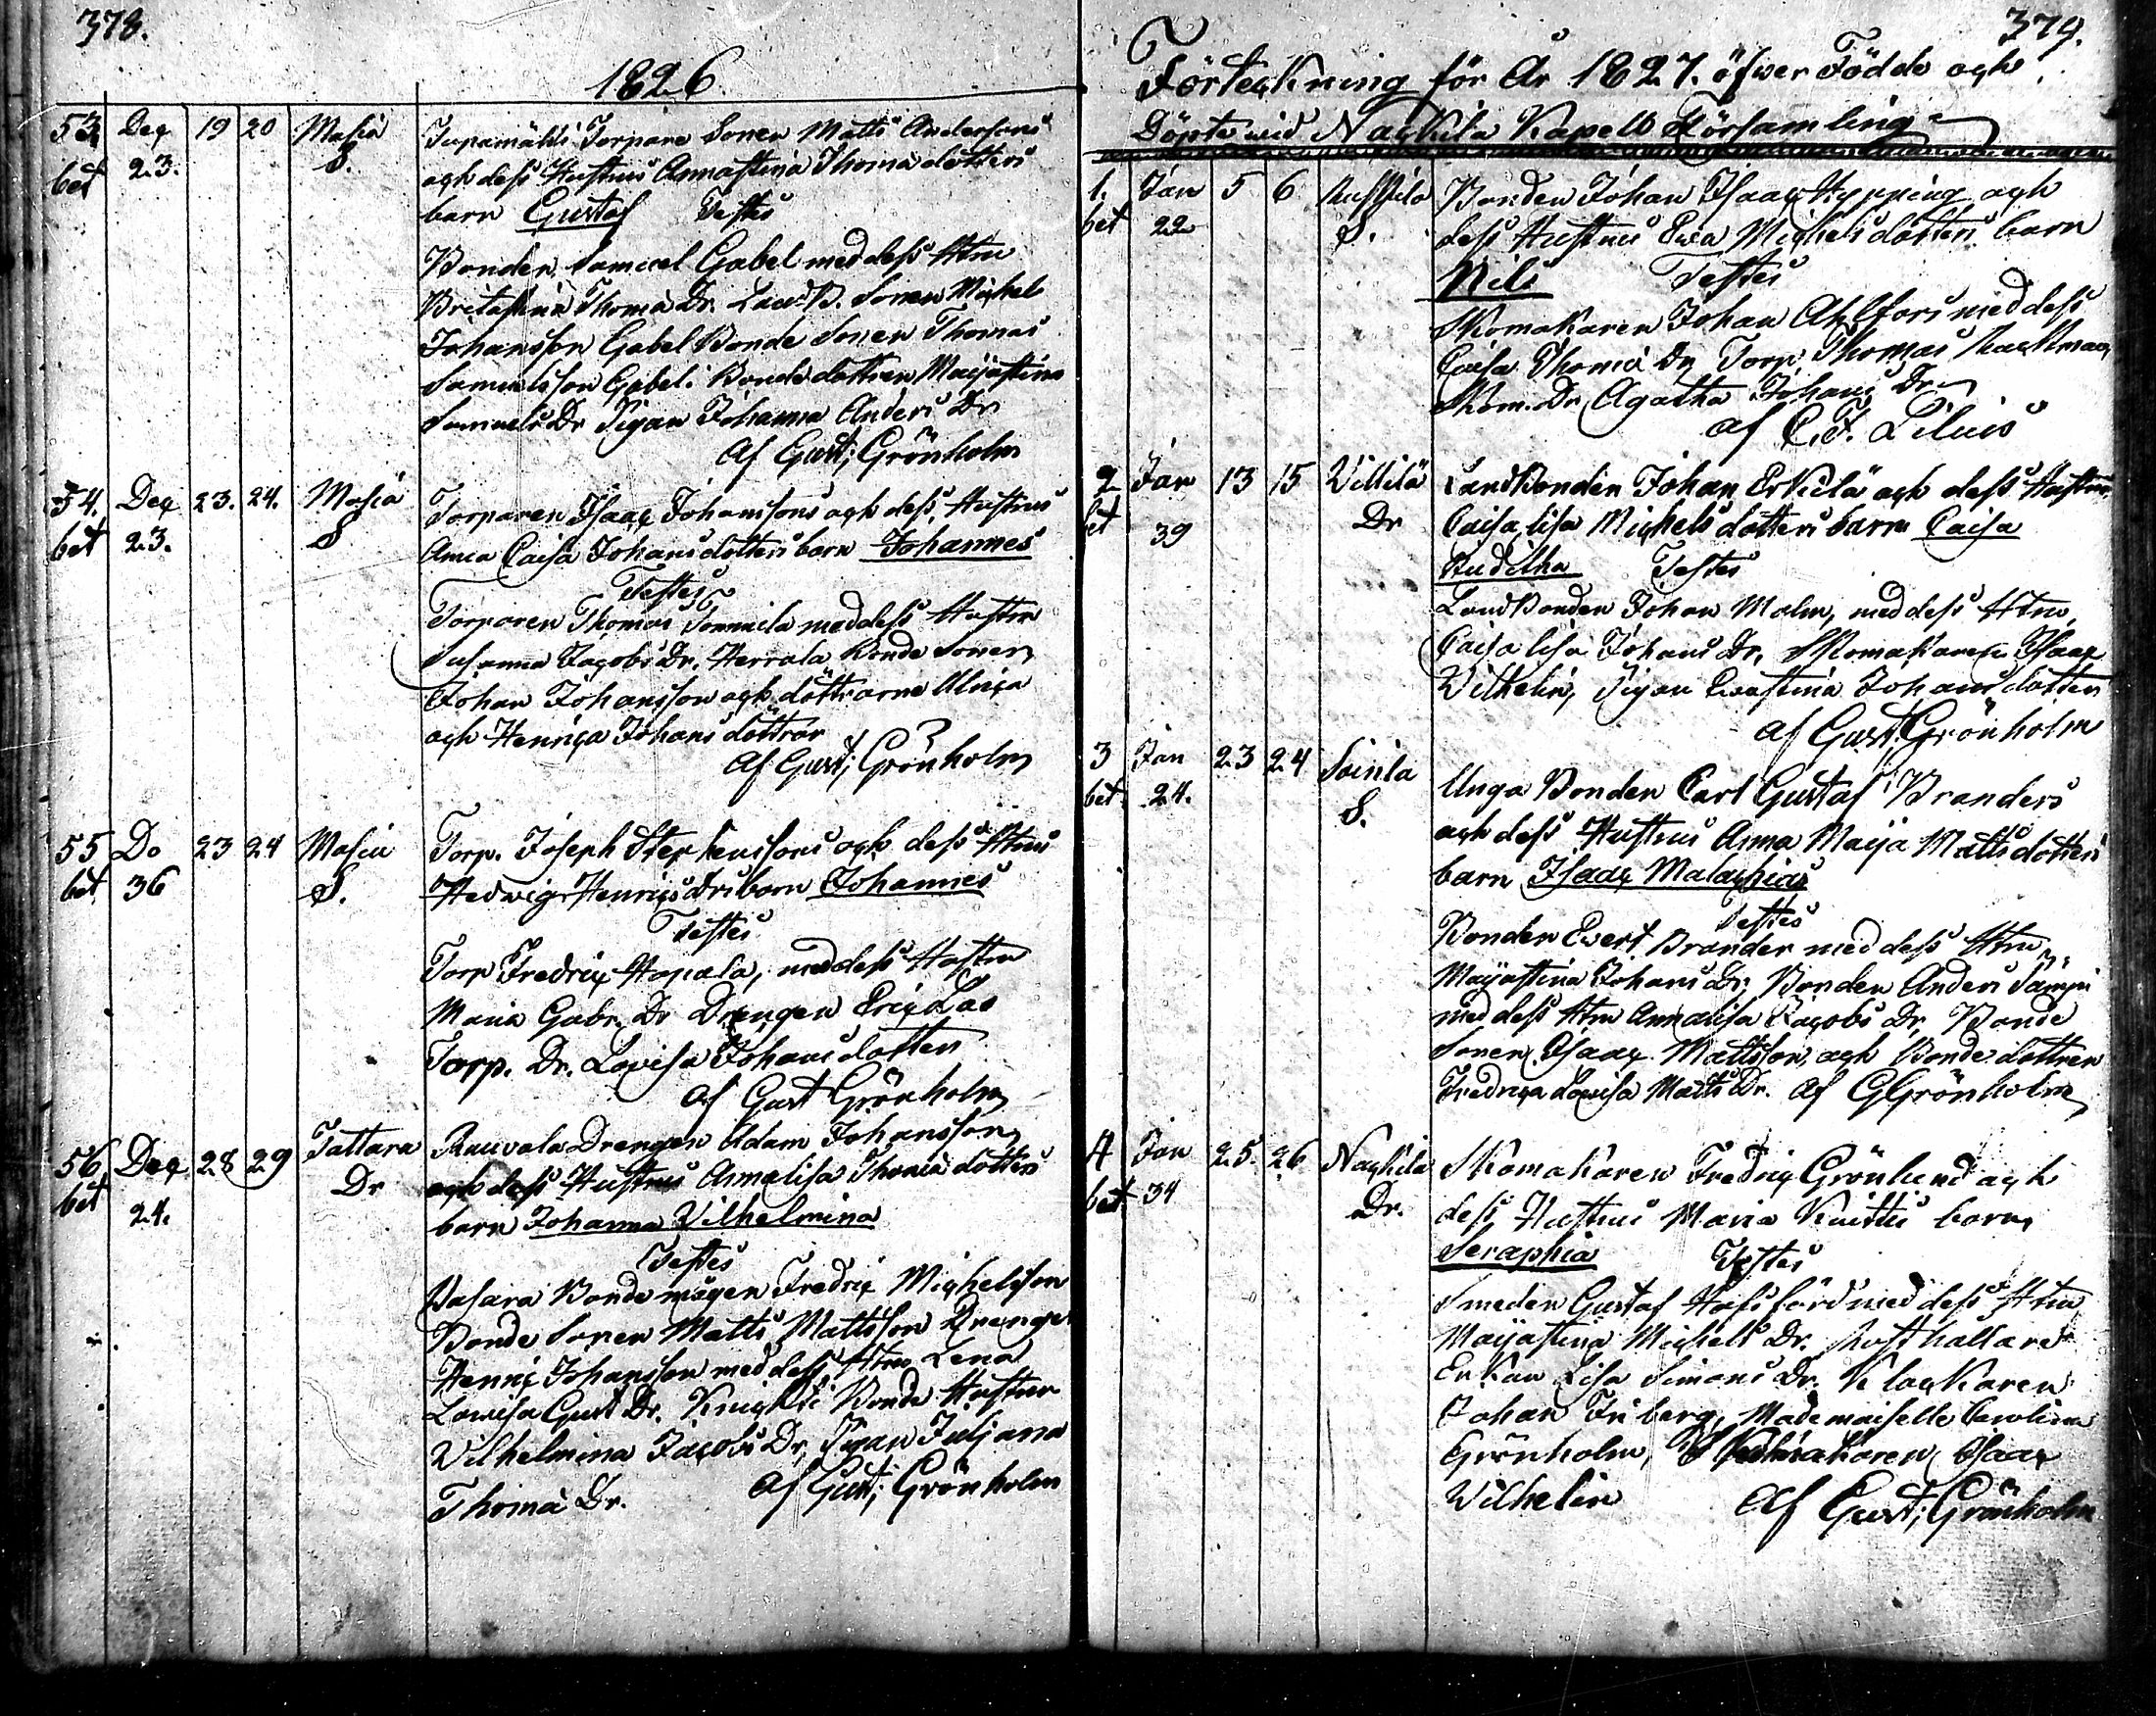 378.
1826
53 Dec 19 20 Masia
bet 23. S.
Torpare Sonen Matts Anderssons
och dess Hustrus Annastina Thomæ dotters
barn Gustaf Testes
Bonden Samuel Gabel med dess Htru
Britastina Thomæ Dr. LandB. Sonen Michel
Johansson Gabel Bonde Sonen Thomas
Samuelsson Gabel Bonde dottren Majastina
Samuels Dr Pigan Johanna Anders Dr
Af Gust; Grönholm
54. Dec 23. 24. Masia
bet 23. S
Torparen Isaac Johanssons och dess Hustrus
Anna Caisa Johansdotters barn Johannes
Testes
Torparen Thomas med dess Hustru
Susanna Jacobs Dr. Herrala Bonde Sonen
Johan Johansson och döttrarne Ulrica
och Henrica Johans döttrar
Af Gust; Grönholm
55 Do 23 24 Masia
bet 36 S.
Torp. Joseph Stephenssons och dess Htrus
Hedwig Henrics Drs barn Johannes
Testes
Torp Fredric Hopala, med dess Hustru
Maria Gabr. Dr Drengen Eric Las
Torp. Dr. Lovisa Johans dotter
Af Gust Grönholm
56 Dec 28 29 Tattara
bet 24. Dr
Rauvola Drengen Adam Johansson
och dess Hustrus Annalisa Thomæ dotters
barn Johanna Vilhelmina
Testes
Vasara Bonde mågen Fredric Michelsson
Bonde Sonen Matts Mattsson Drengen
Henric Johansson med dess Htru Lena
Lovisa Gust Dr. Bonde Hustrun
Vilhelmina Jacobs Dr, Pigan Juljana
Thomæ Dr. Af Gust; Grönholm
379.
Förteckning för År 1827. öfwer Födde och
Döpte wid Nackila Kapells Församling
1. Jan 5 6
bet 22 S.
Bonden Johan Isaac Hypping och
dess Hustrus Ewa Michelsdotters barn
Nils Testes
Skomakaren Johan Ahlfors med dess
Caisa Thomæ Dr Torp. Thomas
Skom. Dr Agatha Johans Dr
af C. F. Lilius
2 Jan 13 15 Villilä
bet 39 Dr
Landbonden Johan Erkilä och dess Hustrus
Caisa lisa Michels dotters barn Caisa
Testes
Landbonden Johan Malm, med dess Htru
Caisa lisa Johans Dr, Skomakaren Isaac
Vilhelin, Pigan Ewastina Johans dotter
af Gust. Grönholm
3 Jan 23 24 Soinila
bet. 24. S.
Unga Bonden Carl Gustaf Branders
och dess Hustrus Anna Maija Matts dotters
barn Isaac Malachias
Testes
Bonden Evert Brander med dess Htru
Maijastina Johans Dr; Bonden Anders
med dess Htru Annalisa Jacobs Dr, Bonde
Sonen Isaac Mattsson, och Bonde dottren
Fredrica Lovisa Matts Dr. Af G Grönholm
4 Jan 25. 26 Nackila
bet 34 Dr.
Skomakaren Fredric Grönlund och
dess Hustrus Maria barn
Seraphia Testes
Smeden Gustaf Hafsförd med dess Htru
Maijastina Michels Dr. Rusthållare
Enkan Lisa Simons Dr. Klockaren
Johan Friberg, Mademoiselle Carolina
Grönholm, Skomakaren Isaac
Vilhelin Af Gust; Grönholm